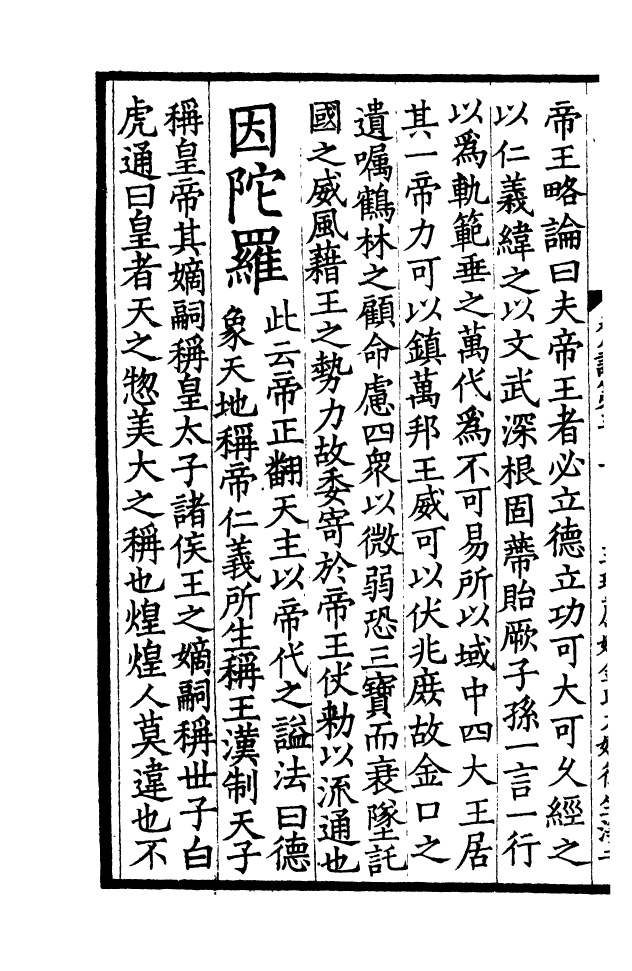 帝王略論曰夫帝王者必立德立功可大可久經之
以仁義緯之以文武深根固蔕貽厥子孫一言一行
以爲軌範垂之萬代爲不可易所以域中四大王居
其一帝力可以鎮萬邦王威可以伏兆庶故金口之
遺囑鶴林之顧命慮四衆以微弱恐三寶而衰墜託
國之威風藉王之勢力故委寄於帝王仗勑以流通也
因陀羅
此云帝正翻天主以帝代之謚法曰德
象天地稱帝仁義所生稱王漢制天子
稱皇帝其嫡嗣稱皇太子諸侯王之嫡嗣稱世子白
虎通曰皇者天之惣美大之稱也煌煌人莫違也不